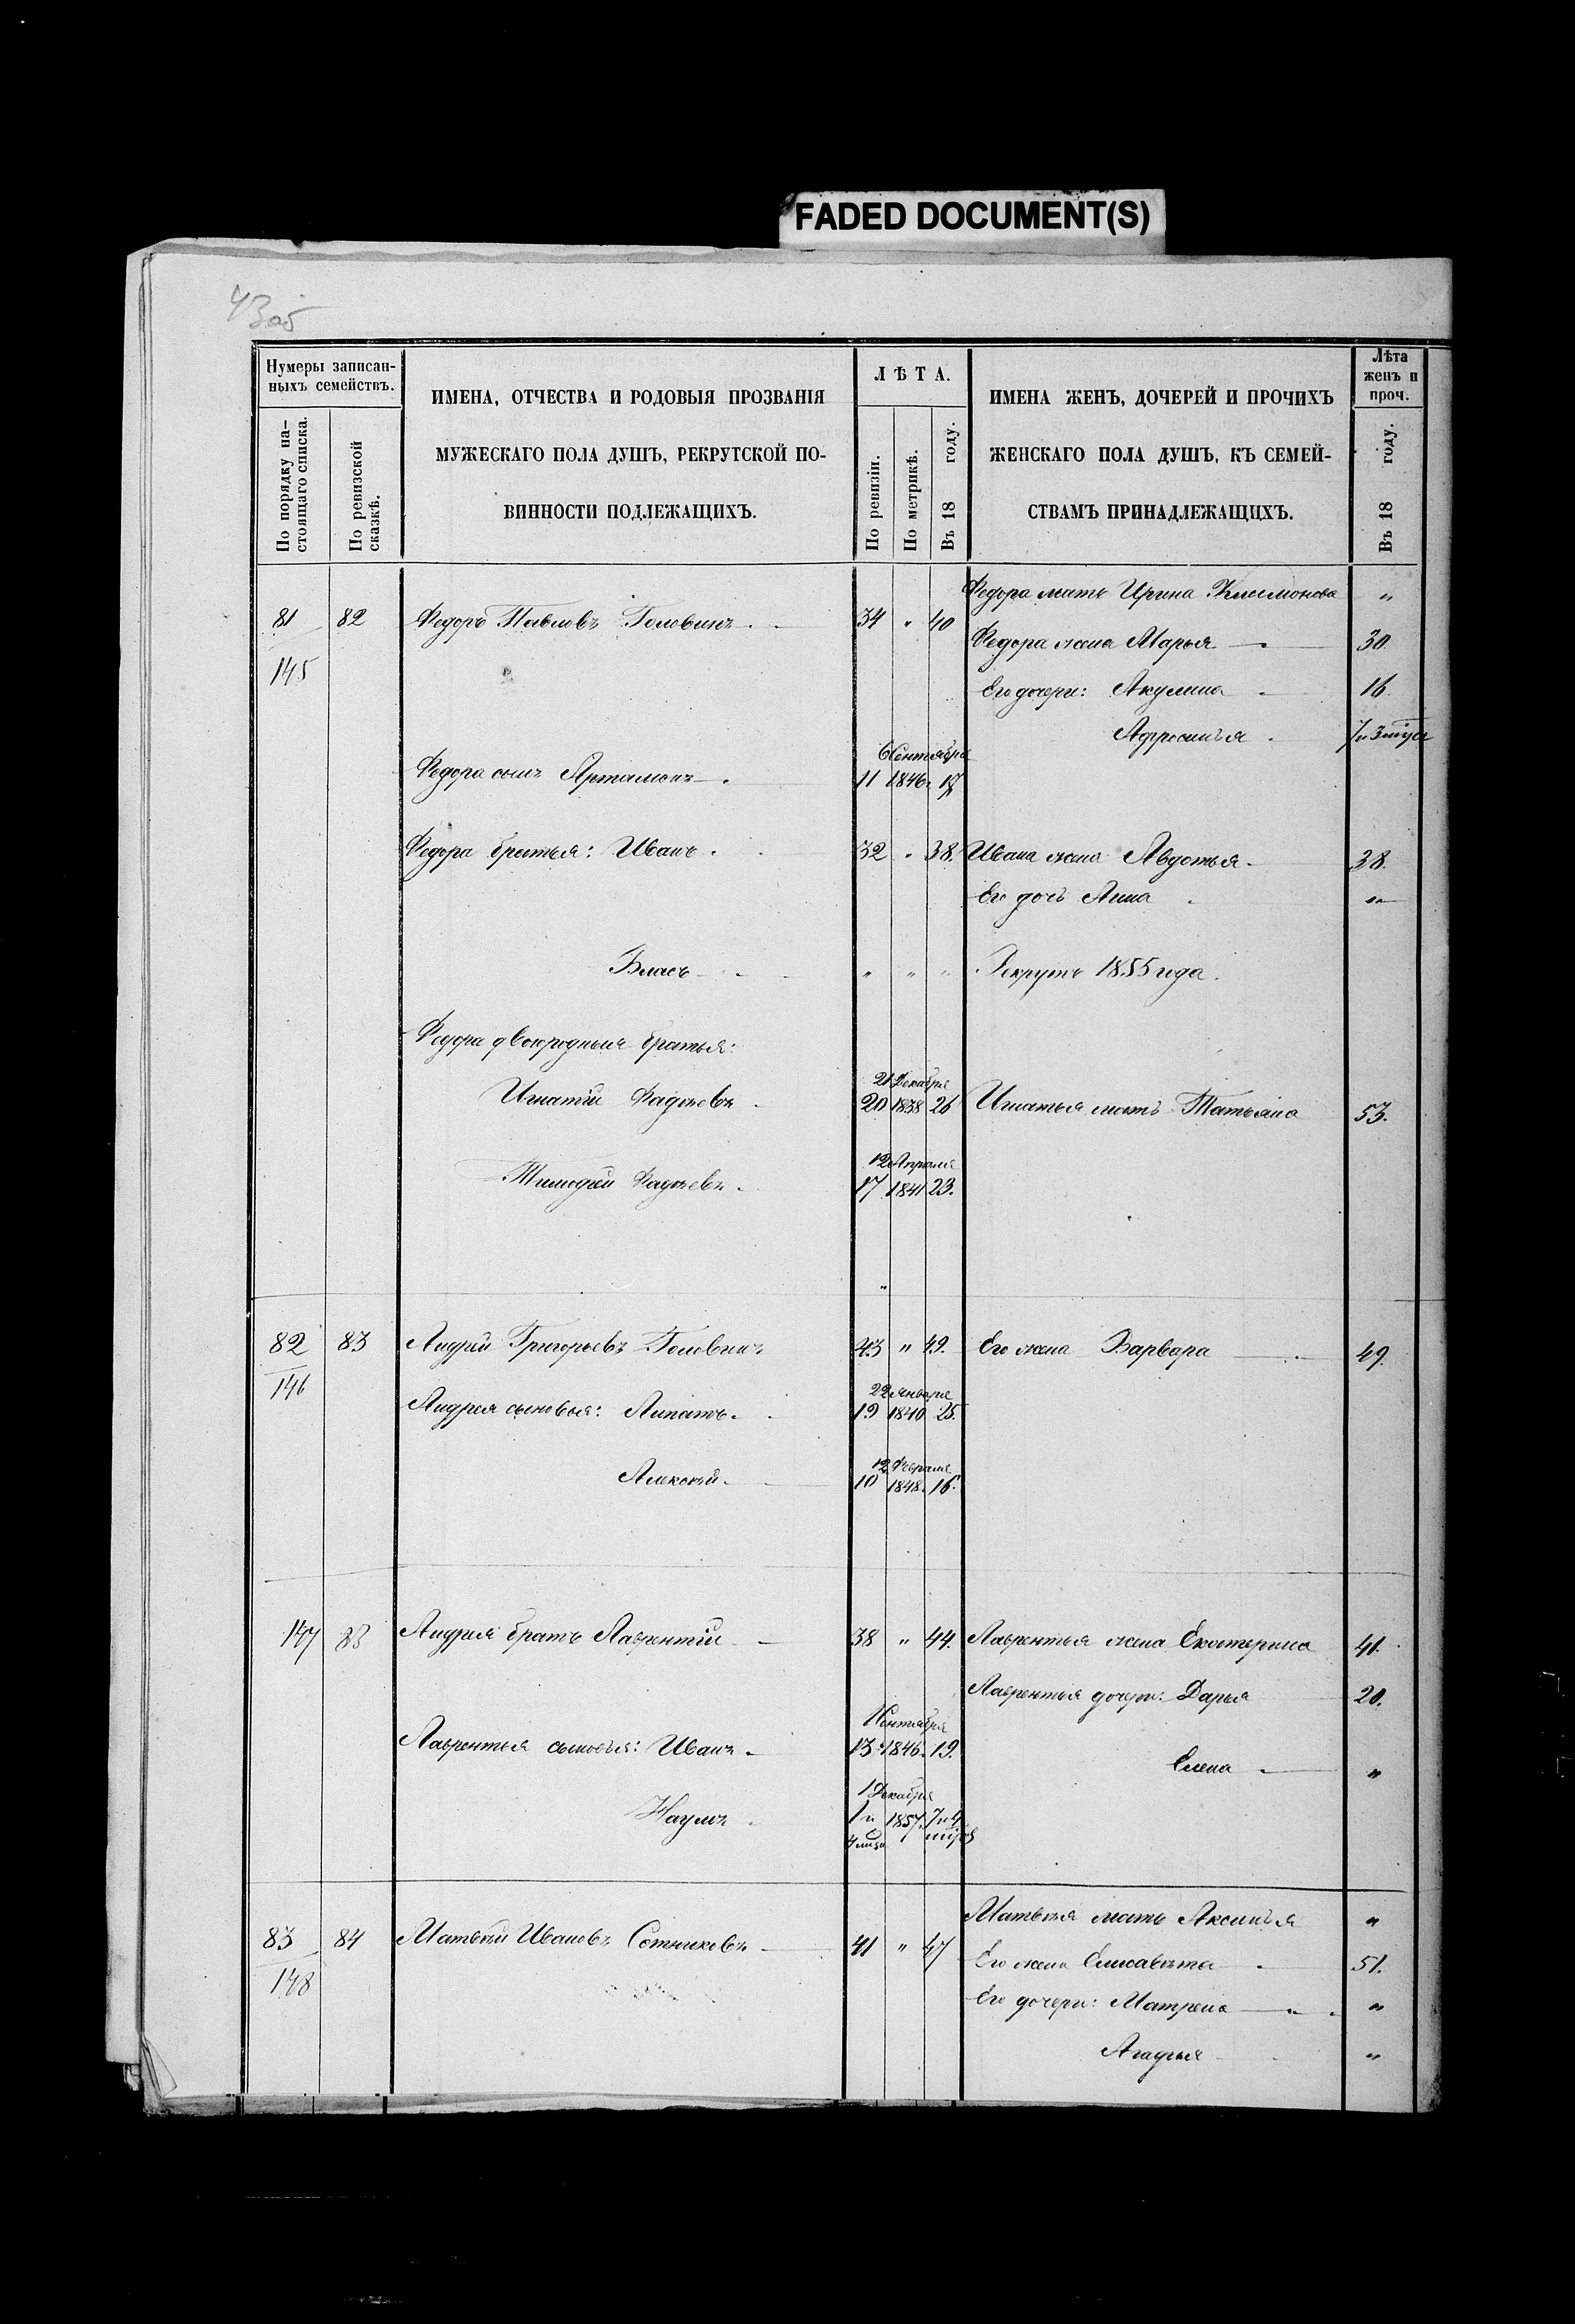 FADED DOCUMENT(S)
43об
Нумеры записан-
ныхъ семействъ.
По порядку на-
стоящаго списка.
По ревизской
сказкѣ.
ИМЕНА, ОТЧЕСТВА И РОДОВЫЯ ПРОЗВАНІЯ
МУЖЕСКАГО ПОЛА ДУШЪ, РЕКРУТСКОЙ ПО-
ВИННОСТИ ПОДЛЕЖАЩИХЪ.
ЛѢТА.
По ревизіи.
По метрикѣ.
Въ 18 году.
ИМЕНА ЖЕНЪ, ДОЧЕРЕЙ И ПРОЧИХЪ
ЖЕНСКАГО ПОЛА ДУШЪ, КЪ СЕМЕЙ-
СТВАМЪ ПРИНАДЛЕЖАЩИХЪ.
Лѣта
женъ и
проч.
Въ 18 году.
Федора мать Ирина "
81 82 Федоръ Павловъ Головинъ 34 " 40
Федора жена Марья 30.
145
Его дочери: Акулина 16.
Афросинья 7 и 3 мѣся
6 Сентября
Федора сынъ Артамонъ 11 1846. 18
Федора братья: Иванъ 32 " 38. Ивана жена Авдотья 38.
Его дочь Анна "
Власъ " " " Рекрутъ 1855 года.
Федора двоюродныя братья:
21 Декабря
Игнатій Фадѣевъ 20 1838 26 Игнатья мать Татьяна 53.
12 Апрѣля
Тимофей Фадѣевъ 17 1841 23.
"
82 83 Андрей Григорьевъ Головинъ 43 " 49. Его жена Варвара 49.
146
22 Января
Андрея сыновья: Липатъ 19 1840 25.
12 Февраля
Алексѣй 10 1848. 16.
147 83 Андрея братъ Лаврентій 38 " 44. Лаврентья жена Екатерина 41.
Лаврентья дочери: Дарья 20.
1 Сентября
Лаврентья сыновья: Иванъ 13 1846. 19.
Елена "
1 Декабря
Наумъ 1 и 1857. 7 и 4
4 мѣся
Матвѣя мать Аксинья "
83 84 Матвѣй Ивановъ Сотниковъ 41 " 47
Его жена Елисавѣта 51.
148
Его дочери: Матрена "
Агафья "